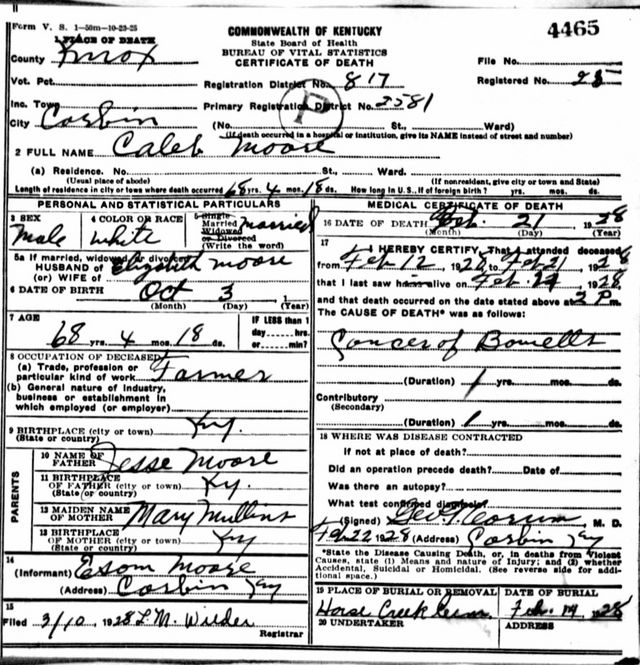 Form V. S. 1-50m-10-23-25
COMMONWEALTH OF KENTUCKY
State Board of Health
BUREAU OF VITAL STATISTICS
CERTIFICATE OF DEATH
4465
1 PLACE OF DEATH
County Knox
File No.
Vot. Pct.
Registration District No. 817
Registered No. 25
Inc. Town
Primary Registration District No. 2581
City Corbin (No. St., Ward)
(If death occurred in a hospital or institution, give its NAME instead of street and number)
2 FULL NAME Caleb Moore
(a) Residence. No. St., Ward.
(Usual place of abode) (If nonresident, give city or town and State)
Length of residence in city or town where death occurred 68 yrs. 4 mos. 18 ds. How long in U. S., if of foreign birth? yrs. mos. ds.
PERSONAL AND STATISTICAL PARTICULARS
3 SEX
Male
4 COLOR OR RACE
White
5 Single
Married
Widowed
or Divorced
(Write the word)
Married
5a If married, widowed or divorced
HUSBAND of
(or) WIFE of
Elizabeth Moore
6 DATE OF BIRTH Oct 3 1
(Month) (Day) (Year)
7 AGE
68 yrs. 4 mos. 18 ds.
IF LESS than 1
day hrs.
or min?
8 OCCUPATION OF DECEASED
(a) Trade, profession or
particular kind of work Farmer
(b) General nature of industry,
business or establishment in
which employed (or employer)
9 BIRTHPLACE (city or town) Ky.
(State or country)
PARENTS
10 NAME OF
FATHER Jesse Moore
11 BIRTHPLACE
OF FATHER (city or town) Ky.
(State or country)
12 MAIDEN NAME
OF MOTHER Mary Mullins
13 BIRTHPLACE
OF MOTHER (city or town) Ky
(State or country)
14
(Informant) Esom Moore
(Address) Corbin Ky
15
Filed 3/10 1928 L. M. Wilder
Registrar
MEDICAL CERTIFICATE OF DEATH
16 DATE OF DEATH Feb. 21 1928
(Month) (Day) (Year)
17
I HEREBY CERTIFY, That I attended deceased
from Feb 12, 1928, to Feb 21, 1928
that I last saw him alive on Feb. 1928
and that death occurred on the date stated above at 2 P m.
The CAUSE OF DEATH* was as follows:
Cancer of Bowells
(Duration) 1 yrs. mos. ds.
Contributory
(Secondary)
(Duration) 1 yrs. mos. ds.
18 WHERE WAS DISEASE CONTRACTED
If not at place of death?
Did an operation precede death? Date of
Was there an autopsy?
What test confirmed diagnosis?
(Signed) M. D.
Feb 22 1928 (Address) Corbin Ky
*State the Disease Causing Death, or, in deaths from Violent
Causes, state (1) Means and nature of Injury; and (2) whether
Accidental, Suicidal or Homicidal. (See reverse side for additional space.)
19 PLACE OF BURIAL OR REMOVAL
Horse Creek Cem.
DATE OF BURIAL
Feb. 1928
20 UNDERTAKER
ADDRESS